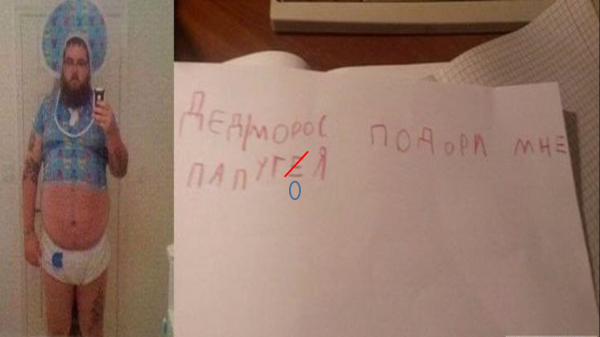 ДЕДМОРОС ПОДОРИ МНЕ
ПАПУГЕЯ
О